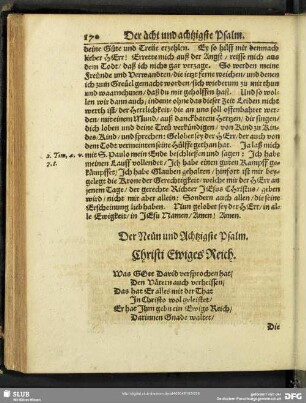 170 Der acht und achtzigste Psalm.
deine Güte und Treüe erzehlen. Ey so hilff mir demnach
lieber HErr: Errette mich auß der Angst/ reisse mich aus
dem Todt/ daß ich nicht gar verzage. So werden meine
Freünde und Verwandten/ die itzt ferne weichen/ und denen
ich zum Greüel gemacht worden/ sich wiederum zu mir thun
und waarnehmen/ daß du mir geholffen hast. Und so wol-
len wir dann auch/ indeme ohne das dieser Zeit Leiden nicht
werth ist/ der Herrlichkeit/ die an uns soll offenbahret wer-
den/ mit einem Mund/ auß danckbarem Hertzen/ dir singen/
dich loben und deine Treü verkündigen/ von Kind zu Kin-
des-Kind/ und sprechen: Gelobet sey der HErr/ der auch von
dem Todt vermuinten seine Hülffe gethan hat. Ja laß mich
2. Tim. 4. v. mit S. Paulo mein Ende beschliessen und sagen: Ich habe
7. 8. meinen Lauff vollendet/ Ich habe einen guten Kampff ge-
kämpffet/ Ich habe Glauben gehalten/ hinfort ist mir bey-
gelegt die Krone der Gerechtigkeit/ welche mir der HErr an
jenem Tage/ der gerechte Richter JEsus Christus/ geben
wird/ nicht mir aber allein/ Sondern auch allen/ die seine
Erscheinung lieb haben. Nun gelobet sey der HErr/ in al-
le Ewigkeit/ in JEsu Namen/ Amen! Amen.
Der Neün und Achtzigste Psalm.
Christi Ewiges Reich.
Was GOtt David versprochen hat/
Den Vätern auch verheissen/
Das hat Er alles mit der That
In Christo wol geleistet/
Er hat Ihm geben ein Ewigs Reich/
Darinnen Gnade waltet/
Die
SLUB
Wir führen Wissen.
DFG